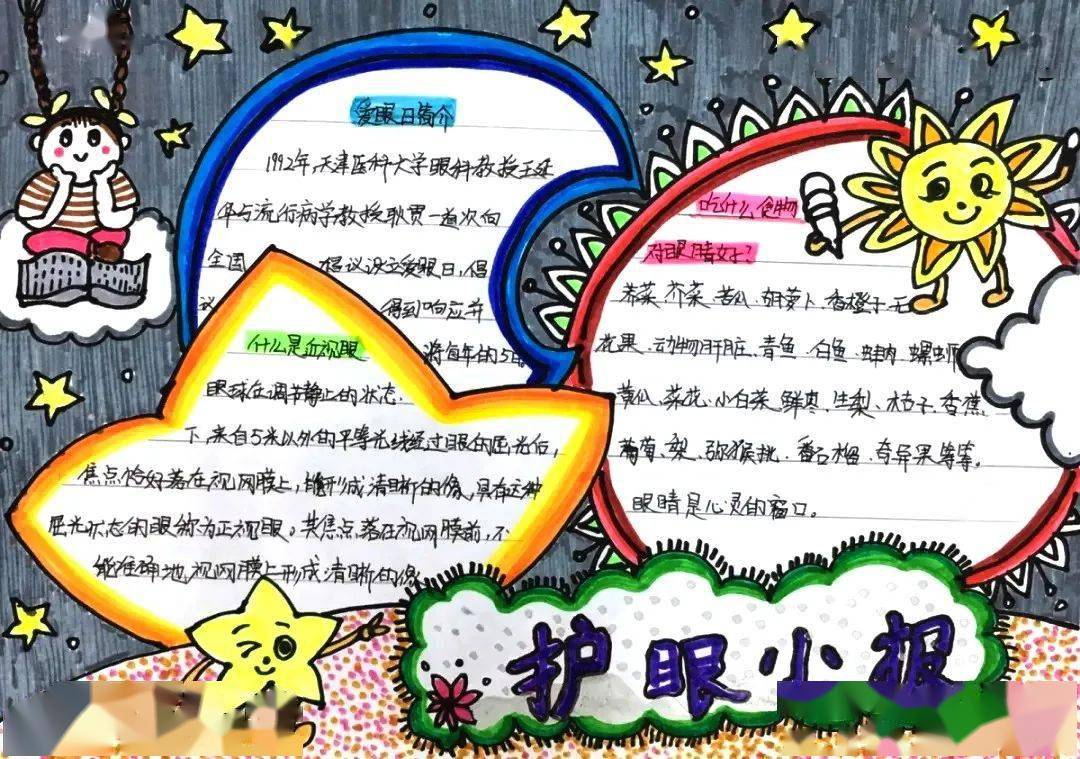 爱眼日简介
1992年，天津医科大学眼科教授王延
华与流行病学教授耿贯一首次向
全国
倡议设立爱眼日，倡
议
得到响应并
将每年的5月
什么是近视眼
眼球在调节静止的状态
下，来自5米以外的平等光线经过眼的屈光后，
焦点恰好落在视网膜上，能形成清晰的像，具有这种
屈光状态的眼称为正视眼。其焦点落在视网膜前，不
能准确地视网膜上形成清晰的像
吃什么食物
对眼睛好？
芥菜、苦瓜、胡萝卜、香橙子、无
花果、动物肝脏、青鱼、白鱼、蚌肉、螺蛳
黄瓜、菜花、小白菜、鲜枣、生梨、桔子、香蕉、
葡萄、梨、弥猴桃、番石榴、奇异果等等。
眼睛是心灵的窗口。
护眼小报